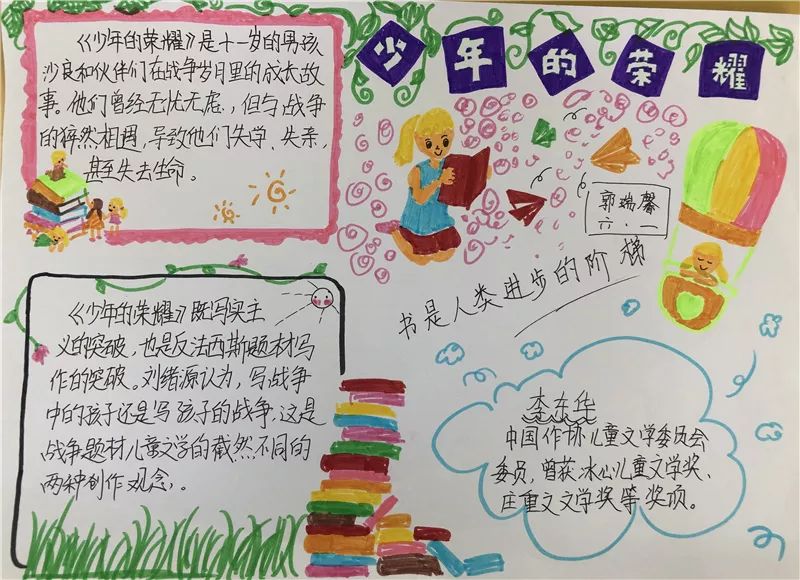 少年的荣耀
《少年的荣耀》是十一岁的男孩
沙良和伙伴们在战争岁月里的成长故
事。他们曾经无忧无虑,但与战争
的猝然相遇,导致他们失学、失亲,
甚至失去生命。
郭瑞馨
六.一
书是人类进步的阶梯
《少年的荣耀》既写实主
义的突破,也是反法西斯题材写
作的突破。刘绪源认为,写战争
中的孩子还是写孩子的战争,这是
战争题材儿童文学的截然不同的
两种创作观念。
李东华
中国作协儿童文学委员会
委员,曾获冰心儿童文学奖、
庄重文文学奖等奖项。